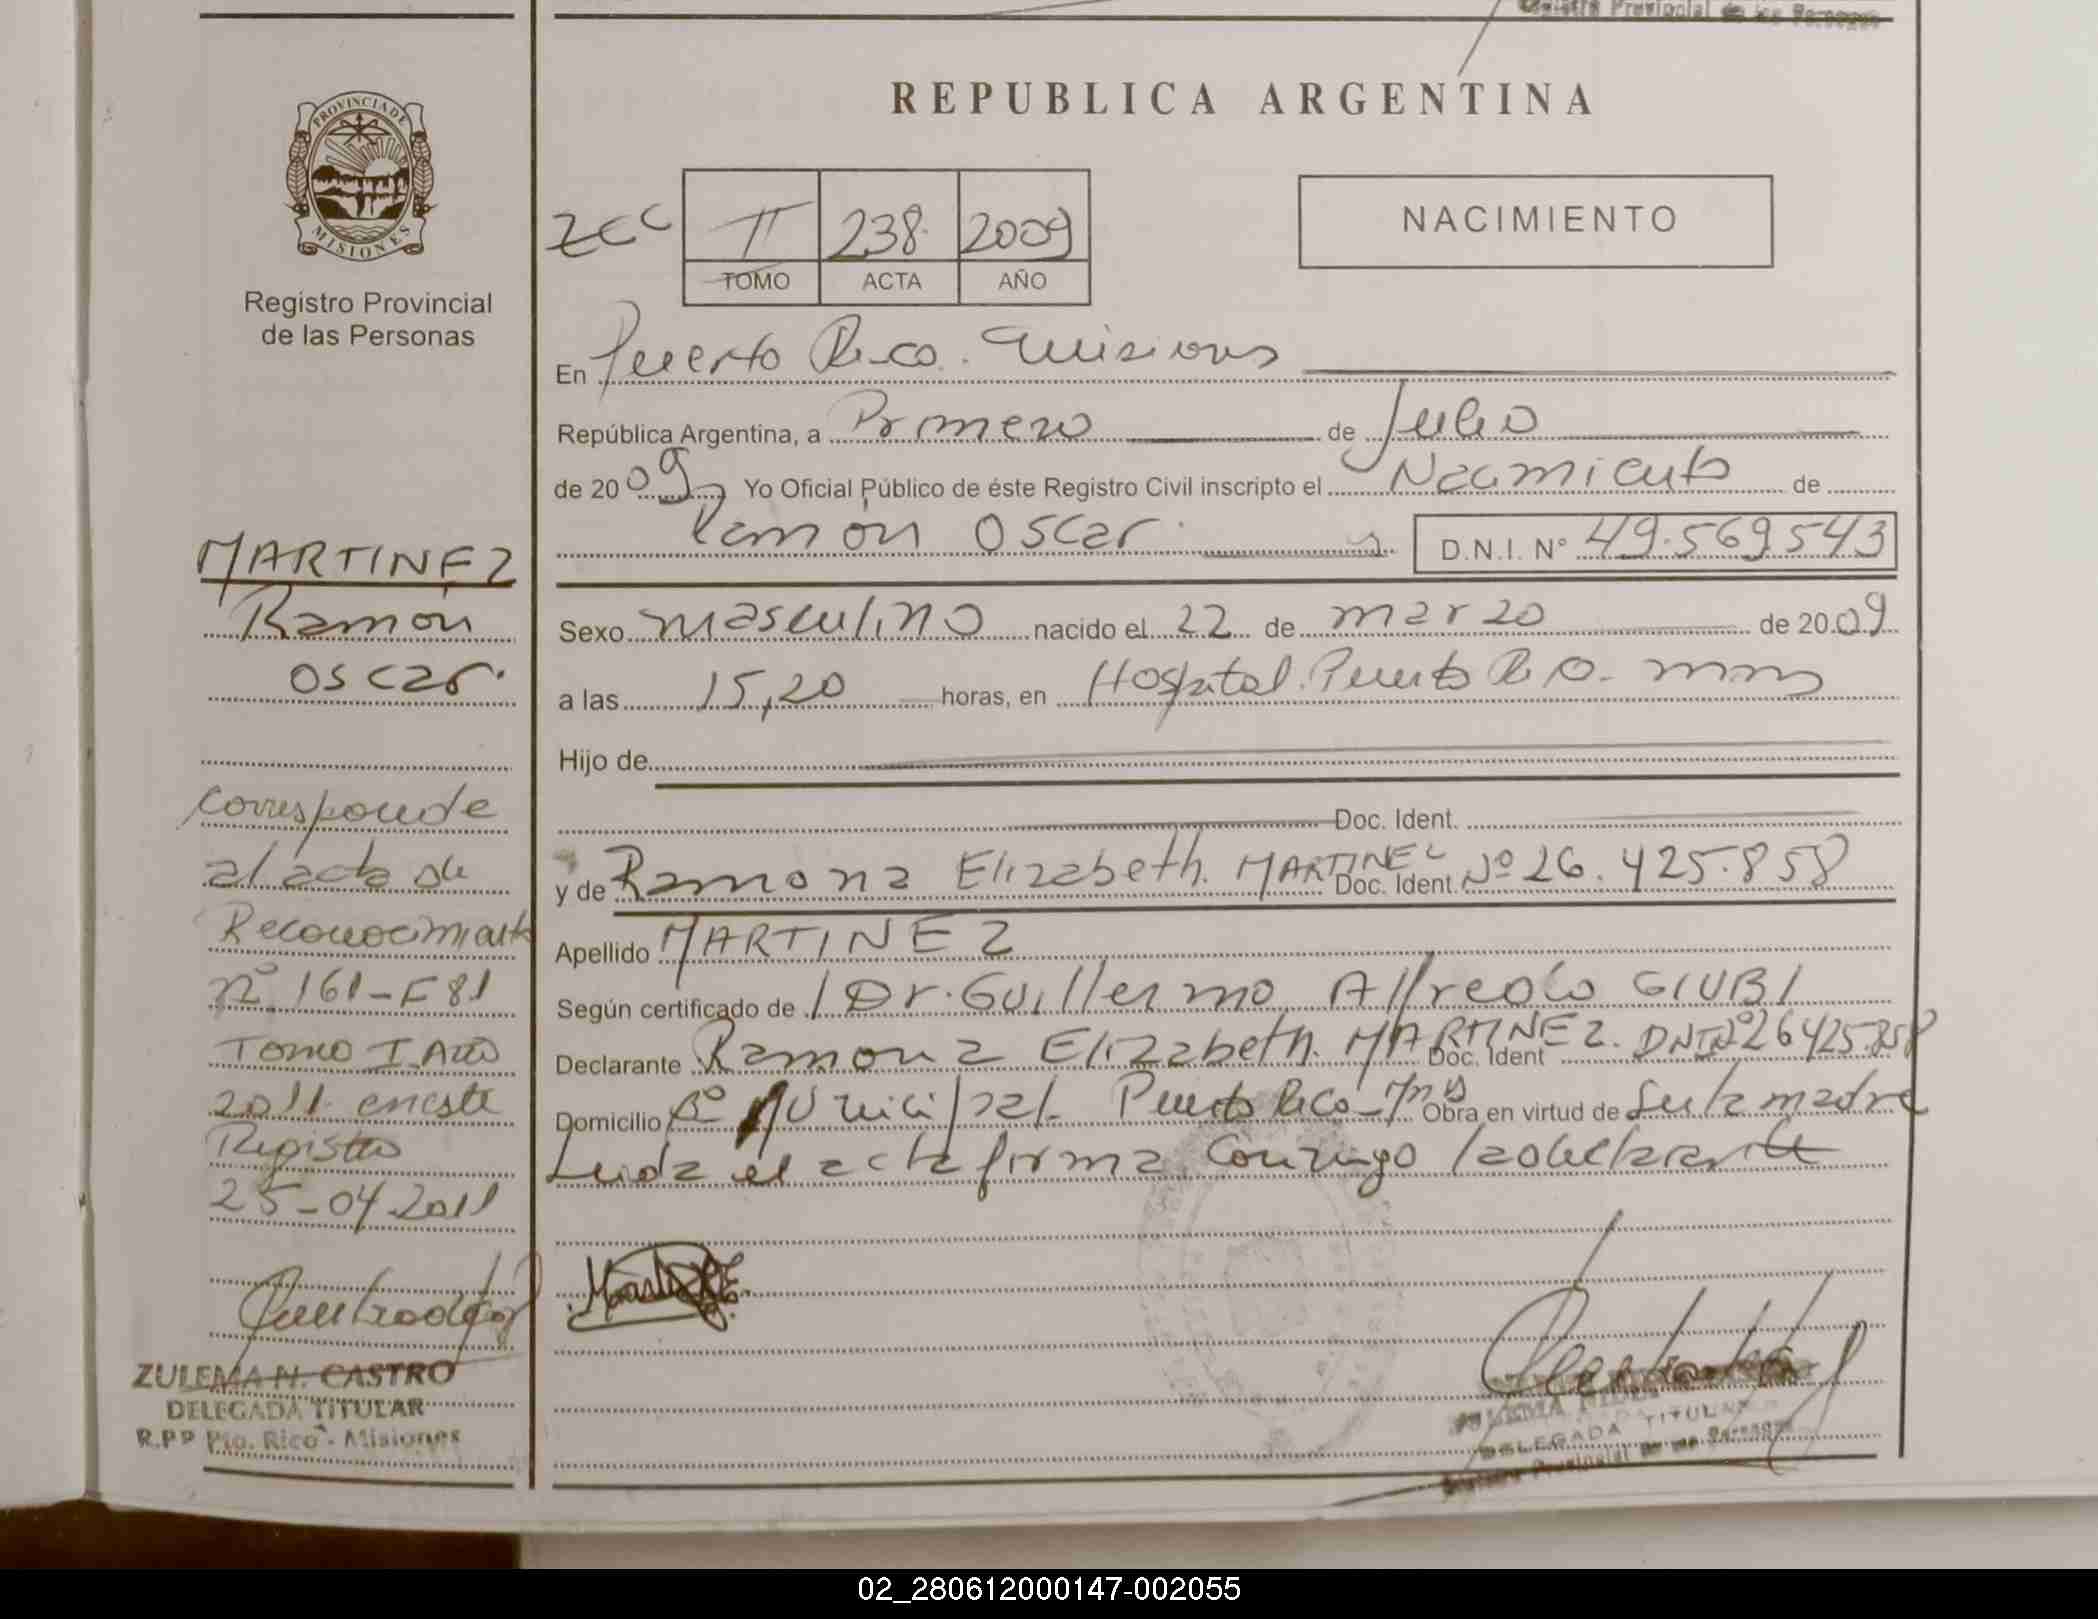 Registro Provincial de las Personas
PROVINCIA DE MISIONES
Registro Provincial
de las Personas
MARTINEZ
Ramón
Oscar.
Corresponde
al acta de
Reconocimiento
nº 161-F81
Tomo I. Año
2011. en este
Registro
25-04-2011
ZULEMA N. CASTRO
DELEGADA TITULAR
R.P.P Pto. Rico - Misiones
REPUBLICA ARGENTINA
II 238. 2009
TOMO ACTA AÑO
NACIMIENTO
En Puerto Rico. Misiones
República Argentina, a Primero de Julio
de 2009 Yo Oficial Público de éste Registro Civil inscripto el Nacimiento de
Ramón Oscar. D.N.I. Nº 49.569543
Sexo masculino nacido el 22 de marzo de 2009
a las 15,20 horas, en Hospital. Puerto Rico. mns
Hijo de
Doc. Ident.
y de Ramona Elizabeth. MARTINEZ Doc. Ident. Nº 26.425.858
Apellido MARTINEZ
Según certificado de Dr. Guillermo Alfredo GIUBI
Declarante Ramona Elizabeth. MARTINEZ. Doc. Ident DNI Nº 26425.858
Domicilio Bº Municipal. Puerto Rico - Mns Obra en virtud de ser la madre
Leida el acta firma conmigo la declarante
DELEGADA TITULAR
Registro Provincial de las Personas
02_280612000147-002055